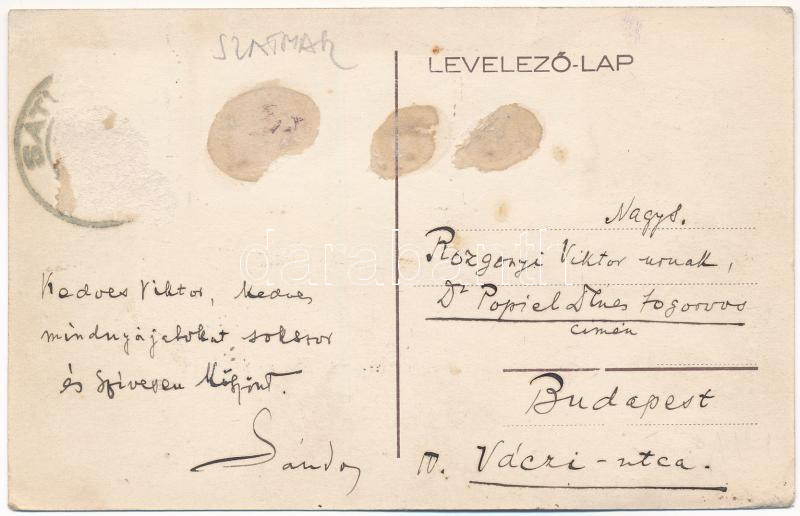 SZATMAR
LEVELEZŐ-LAP
SAT
Nagys.
Rozgonyi Viktor urnak,
Dr Popiel Dénes fogorvos
címén
Budapest
IV. Váczi-utca.
Kedves Viktor, kedves
mindnyájatokat sokszor
és szívesen köszönt.
Sándor
darabanth